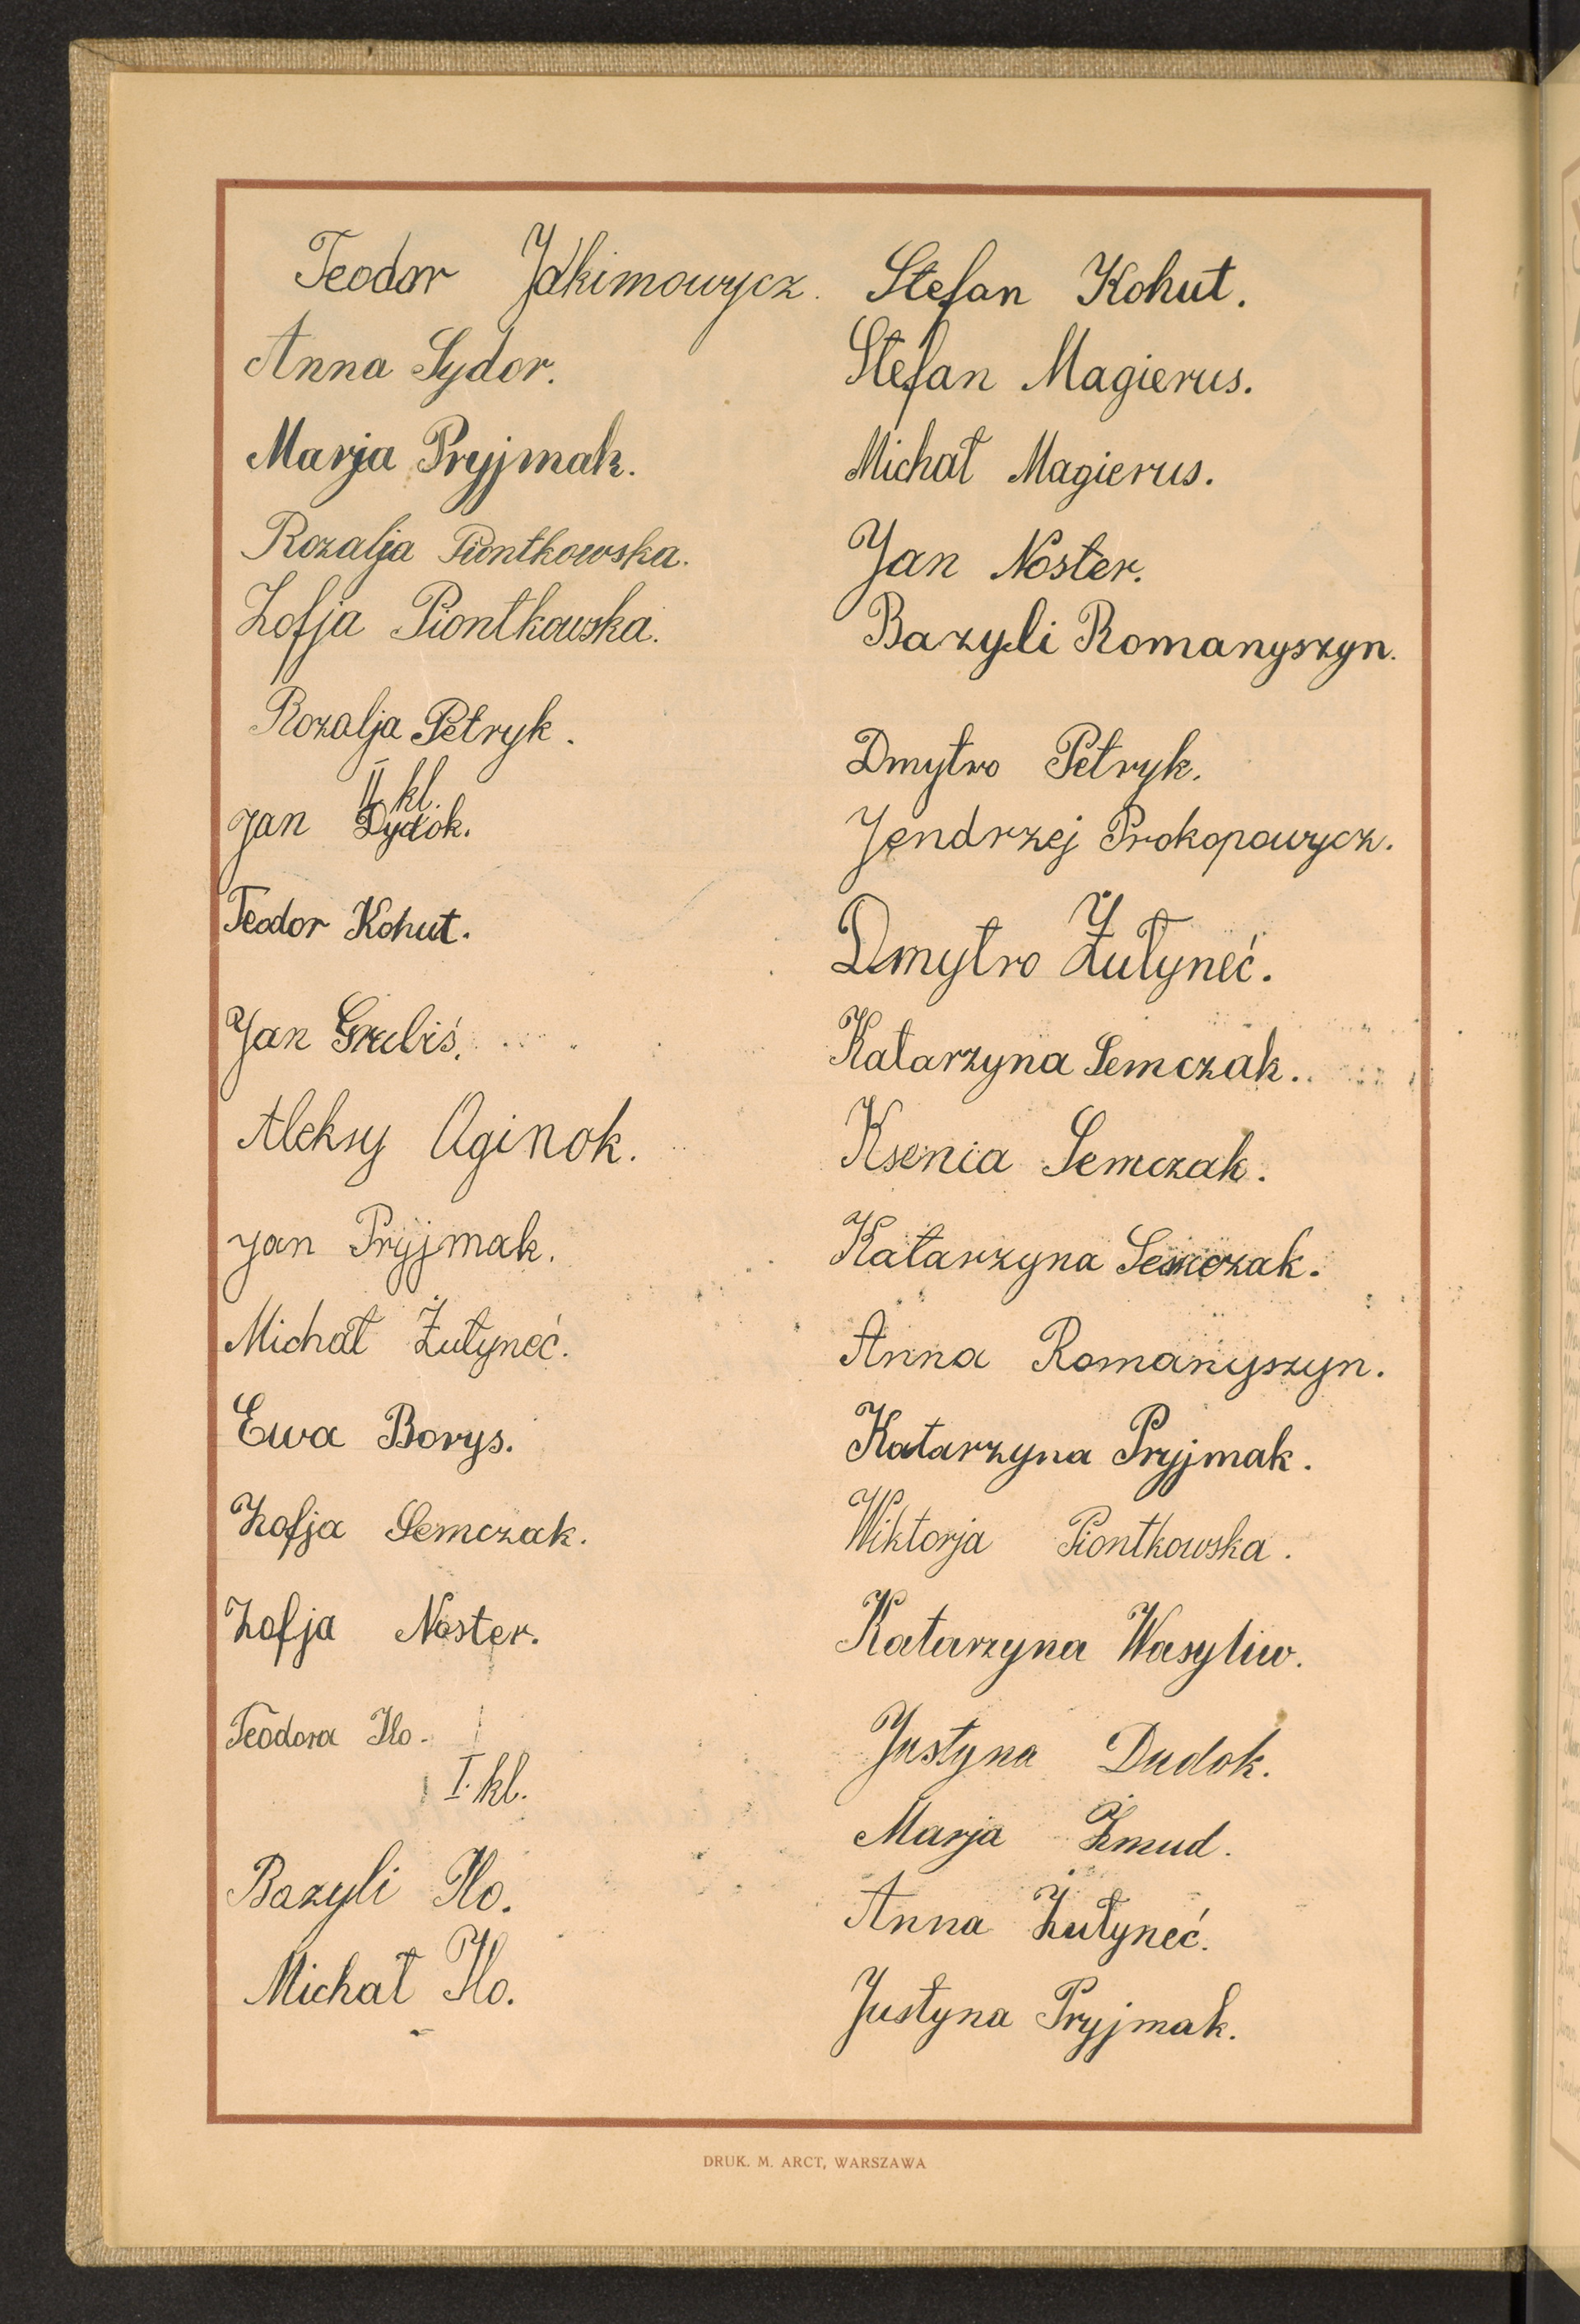 Teodor Jakimowycz.
Anna Sydor.
Marja Pryjmak.
Rozalja Piontkowska.
Zofja Piontkowska.
Rozalja Petryk.
II kl.
Jan Dydok.
Teodor Kohut.
Jan Grubiś.
Aleksy Oginok.
Jan Pryjmak.
Michał Żułyneć.
Ewa Borys.
Zofja Semczak.
Zofja Noster.
Teodora Ilo.
I. kl.
Bazyli Ilo.
Michał Ilo.
Stefan Kohut.
Stefan Magierus.
Michał Magierus.
Jan Noster.
Bazyli Romanyszyn.
Dmytro Petryk.
Jendrzej Prokopowycz.
Dmytro Żułyneć.
Katarzyna Semczak.
Ksenia Semczak.
Katarzyna Semczak.
Anna Romanyszyn.
Katarzyna Pryjmak.
Wiktorja Piontkowska.
Katarzyna Wasyliw.
Justyna Dudok.
Marja Żmud.
Anna Żułyneć.
Justyna Pryjmak.
DRUK. M. ARCT, WARSZAWA